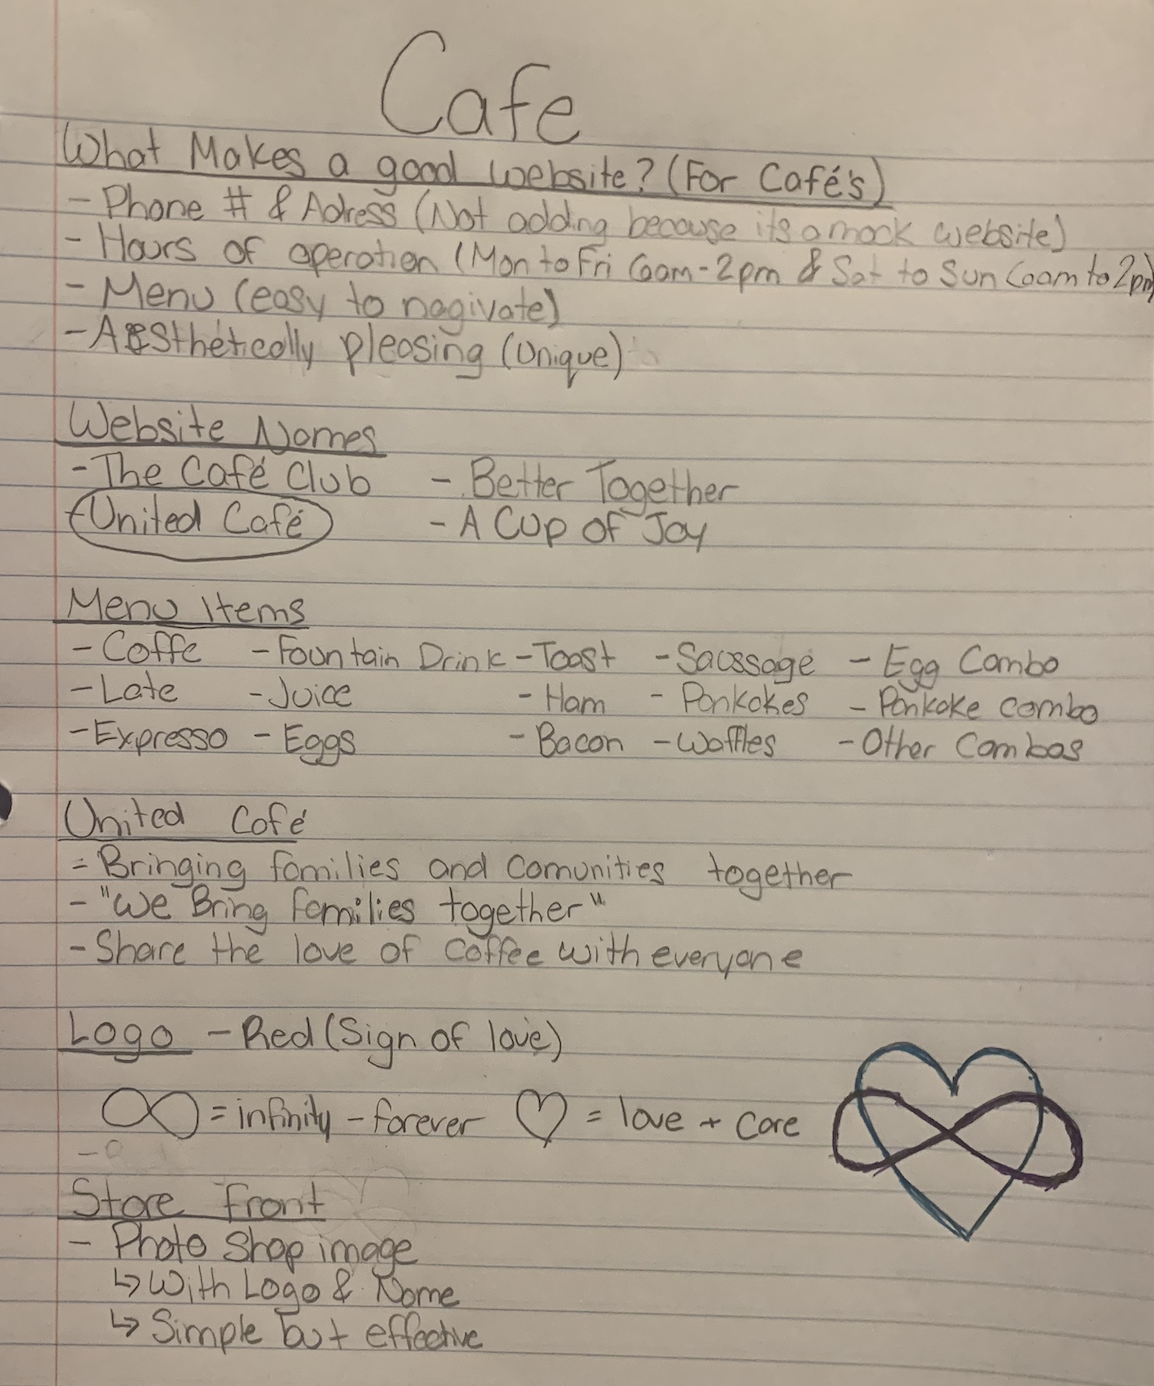 Cafe
What Makes a good website? (For Café's)
- Phone # & Adress (Not adding because its a mock website)
- Hours of operation (Mon to Fri 6am-2pm & Sat to Sun 6am to 2pm)
- Menu (easy to nagivate)
- Aesthetically pleasing (Unique)
Website Names
- The Café Club - Better Together
- United Café - A Cup of Joy
Menu Items
- Coffe - Fountain Drink - Toast - Saussage - Egg Combo
- Late - Juice - Ham - Pankakes - Pankake combo
- Expresso - Eggs - Bacon - Waffles - Other Combos
United Café
= Bringing families and Comunities together
- "We Bring families together"
- Share the love of Coffee with everyone
Logo - Red (Sign of love)
∞ = infinity - forever ♡ = love + care
Store Front
- Photo Shop image
↳ With Logo & Name
↳ Simple but effective